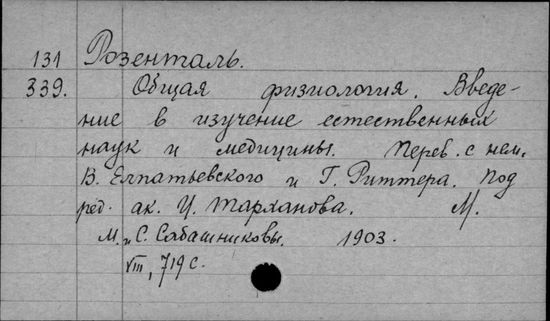 131 Розенталь.
339. Общая физиология. Введе-
ние в изучение естественных
наук и медицины. Перев. с нем.
В. Елпатьевского и Г. Риттера. Под
ред. ак. И. Тарханова. М.
М. и С. Сабашниковы. 1903.
VIII, 719 с.